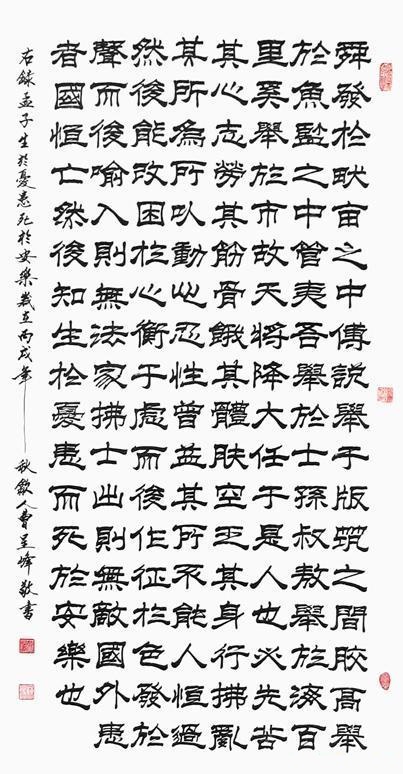 舜發於畎畝之中傅說舉于版筑之間胶鬲舉
於魚鹽之中管夷吾舉於士孫叔敖舉於海百
里奚舉於市故天將降大任于是人也必先苦
其心志勞其筋骨餓其體肤空乏其身行拂亂
其所為所以動心忍性曾益其所不能人恒過
然後能改困於心衡于慮而後作征於色發於
聲而後喻入則無法家拂士出則無敵國外患
者國恒亡然後知生於憂患而死於安樂也
右錄孟子生於憂患死於安樂歲在丙戌年秋歙人曹呈峰敬書